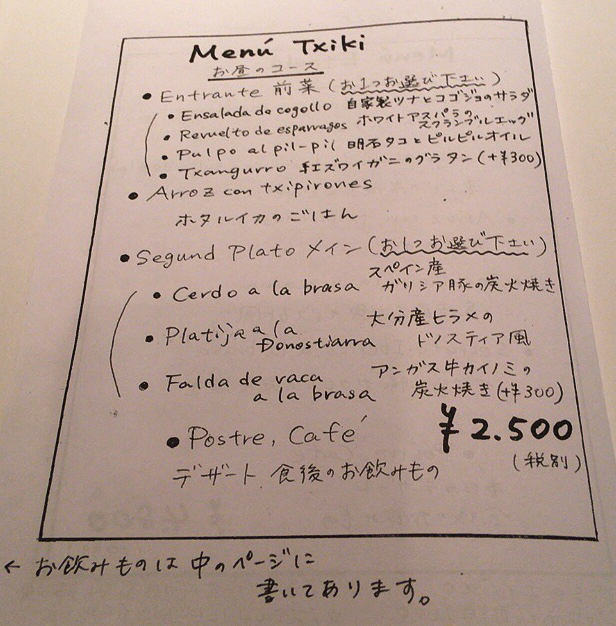 Menú Txiki
お昼のコース
• Entrante 前菜 (お1つお選び下さい)
• Ensalada de cogollo 自家製ツナとコゴジョのサラダ
• Revuelto de esparragos ホワイトアスパラのスクランブルエッグ
• Pulpo al pil-pil 明石タコとピルピルオイル
• Txangurro 紅ズワイガニのグラタン (+¥300)
• Arroz con txipirones
ホタルイカのごはん
• Segund Plato メイン (お1つお選び下さい)
• Cerdo a la brasa スペイン産ガリシア豚の炭火焼き
• Platija a la Donostiarra 大分産ヒラメのドノスティア風
• Falda de vaca a la brasa アンガス牛カイノミの炭火焼き (+¥300)
• Postre, Café
¥2.500
デザート 食後のお飲みもの
(税別)
← お飲みものは中のページに
書いてあります。